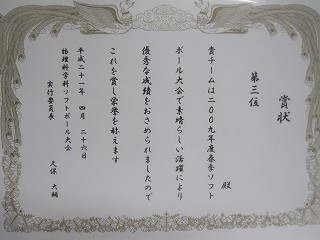 賞状
第三位
殿
貴チームは二〇〇九年度春季ソフト
ボール大会で素晴らしい活躍により
優秀な成績をおさめられましたので
これを賞し栄誉を称えます
平成二十一年 四月 二十六日
物理科学科ソフトボール大会
実行委員長 久保 大輔